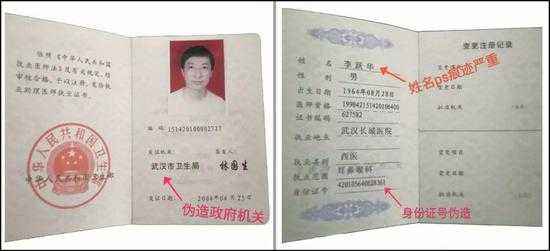 依照《中华人民共和国
执业医师法》及有关规定,经
审核合格,予以注册,发给
执业助理医师执业证书。
中华人民共和国卫生部
编码:151420100002727
发证机关:
签发人:
武汉市卫生局
林国生
伪造政府机关
发证日期:
2004年04月23日
姓名
李跃华
姓名ps痕迹严重
性别
男
出生日期
1964年08月28日
医师资格
199842151420106400
证书编码
627582
执业地点
武汉长城医院
执业类别
西医
执业范围
耳鼻喉科
身份证号
身份证号伪造
变更注册记录
变更事项
变更日期
批准机关
变更事项
变更日期
批准机关